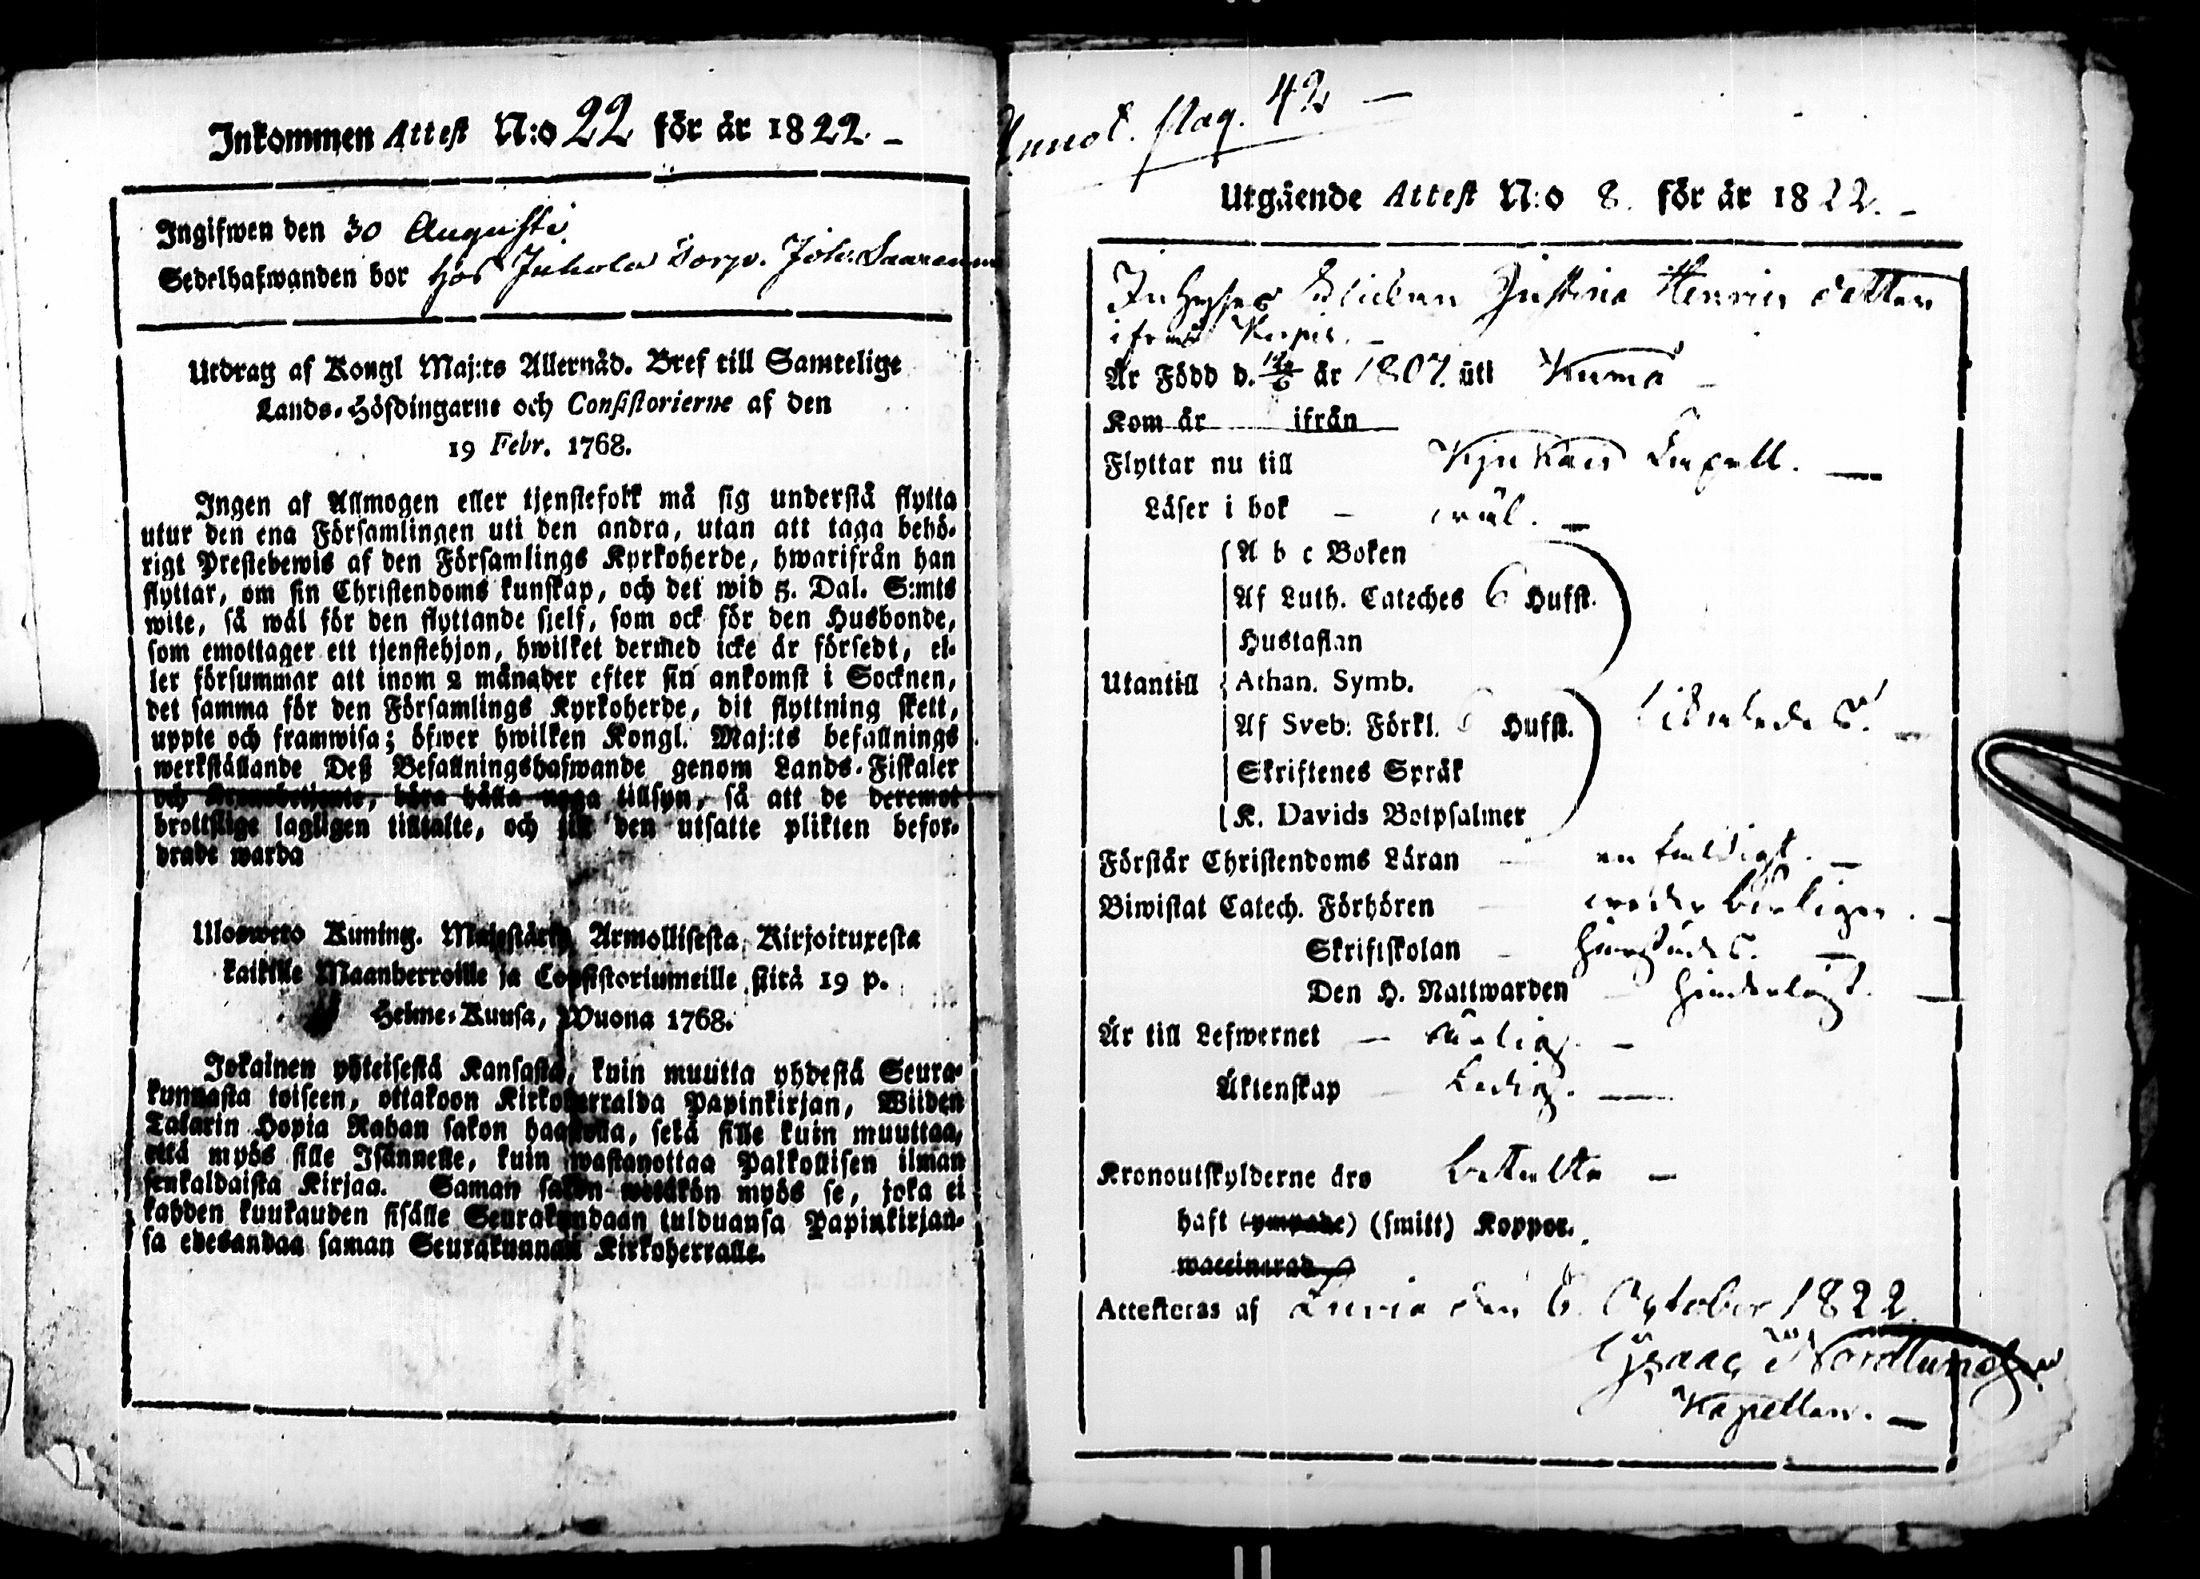 Inkommen Attest N:o 22 för år 1822. -
Ingifwen den 30 Augusti
Sedelhafwanden bor hos Juhola Torp. Joh. Saaren
Utdrag af Kongl Maj:ts Allernåd. Bref till Samtelige
Lands-Höfdingarne och Consistorierne af den
19 Febr. 1768.
Ingen af Allmogen eller tjenstefolk må sig understå flytta
utur den ena Församlingen uti den andra, utan att taga behö-
rigt Prestebewis af den Församlings Kyrkoherde, hwarifrån han
flyttar, om sin Christendoms kunskap, och det wid 5. Dal. S:mts
wite, så wäl för den flyttande sjelf, som ock för den Husbonde,
som emottager ett tjenstehjon, hwilket dermed icke är försedt, el-
ler försummar att inom 2 månader efter sin ankomst i Socknen,
det samma för den Församlings Kyrkoherde, dit flyttning skett,
uppte och framwisa; öfwer hwilken Kongl. Maj:ts befallnings
werkställande Deß Befallningshafwande genom Lands-Fiskaler
och Kronobetjente, böra hålla noga tillsyn, så att de deremot
brottslige lagligen tilltalte, och till den utsatte plikten befor-
drade warda
Uloswero Kuning. Majestätin Armollisesta Kirjoituxesta
kaikille Maanherroille ja Consistoriumeille siitä 19 p.
Helme-Kuusa, Wuona 1768.
Jokainen yhteisestä Kansasta, kuin muutta yhdestä Seura-
kunnasta toiseen, ottakoon Kirkoherralda Papinkirjan, Wiiden
Talarin Hopia Rahan sakon haastolla, sekä sille kuin muuttaa,
että myös sille Isännelle, kuin wastanottaa Palkollisen ilman
senkaldaista Kirjaa. Saman sakon wetäkön myös se, joka ei
kahden kuukauden sisälle Seurakundaan tulduansa Papinkirjan-
sa edesandaa saman Seurakunnan Kirkoherralle.
Annot. pag. 42 —
Utgående Attest N:o 8. för år 1822. -
Inhyses Flickan Justina Henrics dotter
ifrån
Är Född d. år 1807. uti Kumo
Kom år ifrån
Flyttar nu till Kjukais Capell. —
Läser i bok - wäl. —
A b c Boken
Af Luth. Cateches 6 Hufst.
Hustaflan
Utantill Athan. Symb.
Af Sveb: Förkl. 6 Hufst.
Skriftenes Språk
K. Davids Botpsalmer
Förstår Christendoms Läran enfaldigt. —
Biwistat Catech. Förhören . —
Skriftskolan —
Den H. Nattwarden —
Är till Lefwernet — ärlig. —
Äktenskap Ledig. —
Kronoutskylderne äro betalte —
haft (ympade) (smitt) Koppor.
waccinerad
Attesteras af Luvia den 6. October 1822.
Isaac Nordlund
Kapellan. —